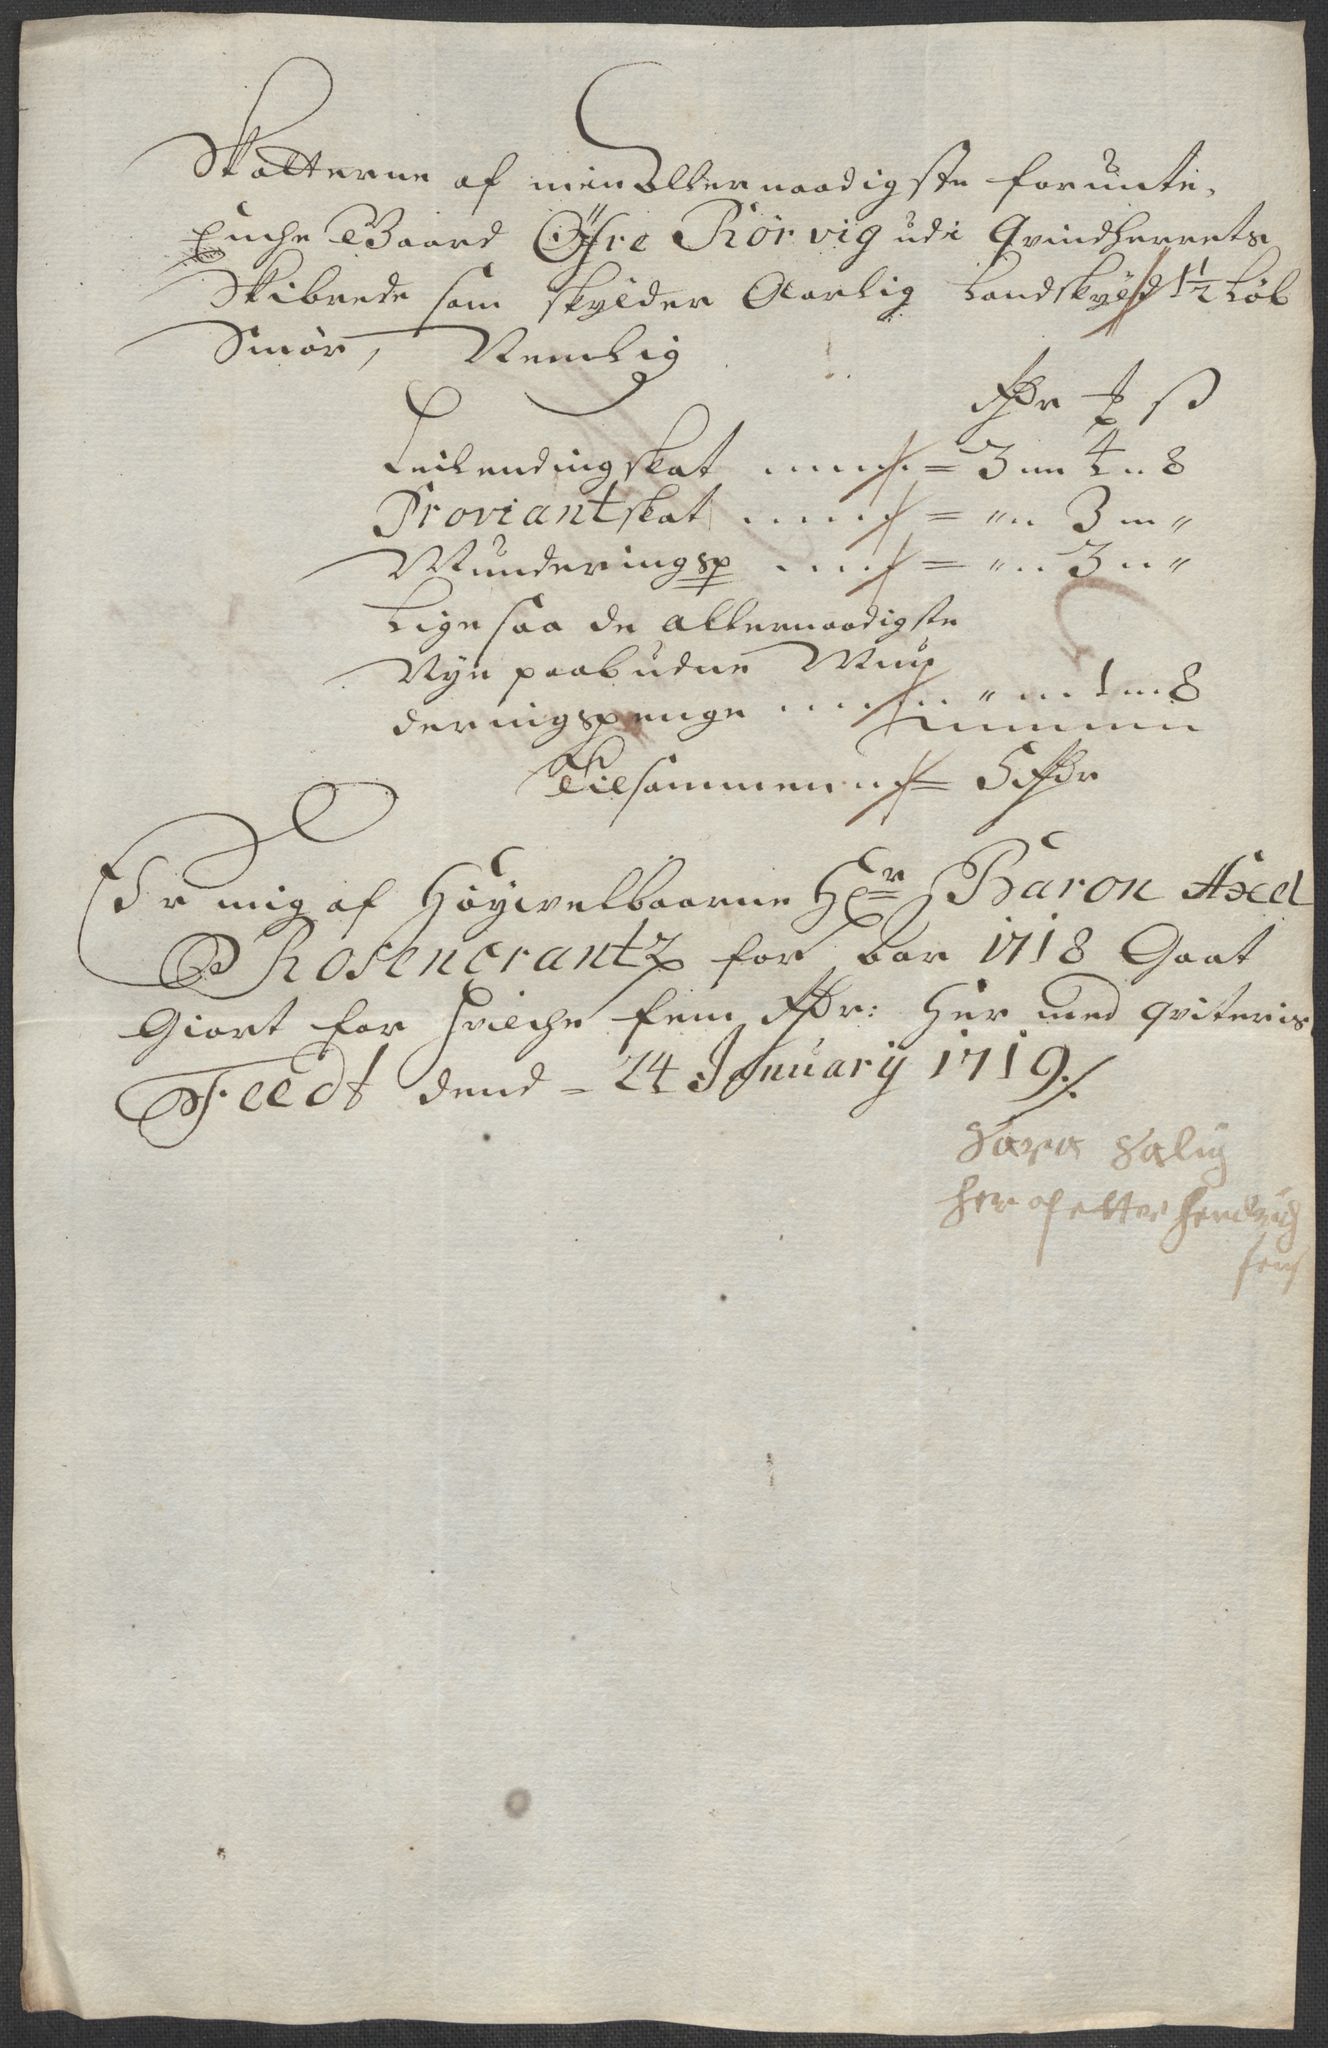 Skatterne af min Allernaadigste forunte,
Encke Gaard Öfre Rörvig udi Qvindherrets
Skibrede som skylder Aarlig Landskyld 1½ Løb
Smør, Nemlig
Rdr ß
Leilendingskat = 3 4 8
Proviantskat = " 3 "
Munderingsp = " 3 "
Ligesaa de allernaadigste
Nye paabudne Mun
deringspenge " 1 8
Tilsammen = 5 Rdr
Er mig af Höywelbaarne Hr Baron Axel
Rosencrantz for Aar 1718 Gaat
Giort for hvilche fem Rdr: Her med qviteris
Feedt dend 24 January 1719
Sara Salig
her Petter hendrich
sens